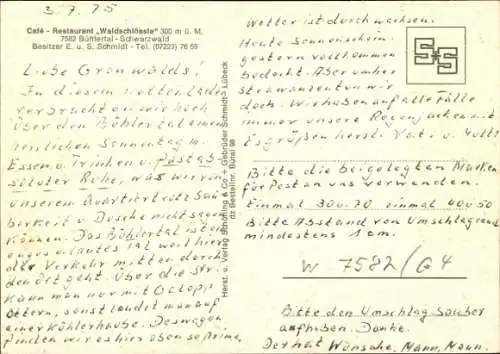 3.7.75
Café - Restaurant „Waldschlössle" 300 m ü. M.
7582 Bühlertal - Schwarzwald
Besitzer E. u. S. Schmidt - Tel. (07223) 76 59
Liebe Gronwalds!
In diesem netten Laden
verbrachten wir hoch
über den Bühlertal einen
herrlichen Sonntag m.
Essen u. Trinken u.
Ruhe, was wir in
unserem Quartier trotz Sau
berkeit u. Dusche nicht sagen
können. Das Bühlertal ist ein
enges u. lautes Tal weil hier
der Verkehr mitten durch
den Ort geht. Über die Str.
kann man nur mit
sonst landet man auf
einer Kühlerhaube. Deswegen
finden wir es hier oben so prima.
Wetter ist durchwachsen.
Heute Sonnenschein
gestern vollkommen
bedeckt. Aber umher
wir
doch. Wir haben auf alle Fälle
immer unsere Regenjacken mit
Es grüßen herzl. Vati u. Mutti
Herst. u. Verlag Schöning & Co + Gebrüder Schmidt, Lübeck
Bitte die beigelegten Marken
für Postan uns verwenden.
Einmal 30 u. 70 einmal 40 u 50
Bitte Abstand von Umschlagrand
mindestens 1 cm.
W 7582/64
Bitte den Umschlag sauber
aufheben. Danke.
Der hat Wünsche, Mann, Mann.